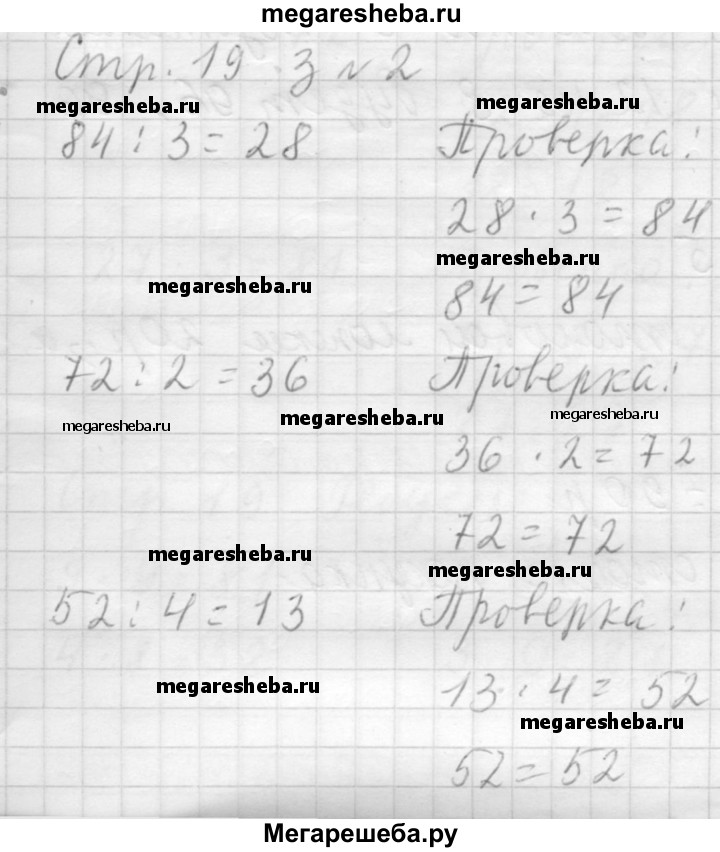 megaresheba.ru
Стр. 19. з №2
megaresheba.ru megaresheba.ru
84 : 3 = 28 Проверка:
28 · 3 = 84
megaresheba.ru
megaresheba.ru
84 = 84
72 : 2 = 36 Проверка:
megaresheba.ru megaresheba.ru megaresheba.ru
36 · 2 = 72
72 = 72
megaresheba.ru
megaresheba.ru
52 : 4 = 13 Проверка:
megaresheba.ru
13 · 4 = 52
megaresheba.ru
52 = 52
Мегарешеба.ру